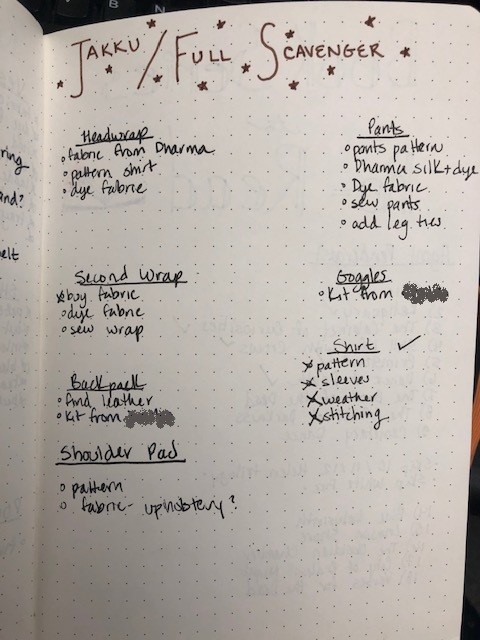 Jakku / Full Scavenger
Headwrap
fabric from Dharma
pattern shirt
dye fabric
Second Wrap
buy fabric
dye fabric
sew wrap
Backpack
find leather
Kit from
Shoulder Pad
pattern
fabric - upholstery?
Pants
pants pattern
Dharma silk + dye
Dye fabric
sew pants
add leg ties
Goggles
Kit from
Shirt ✓
pattern
sleeves
weather
stitching
ring
and?
elt